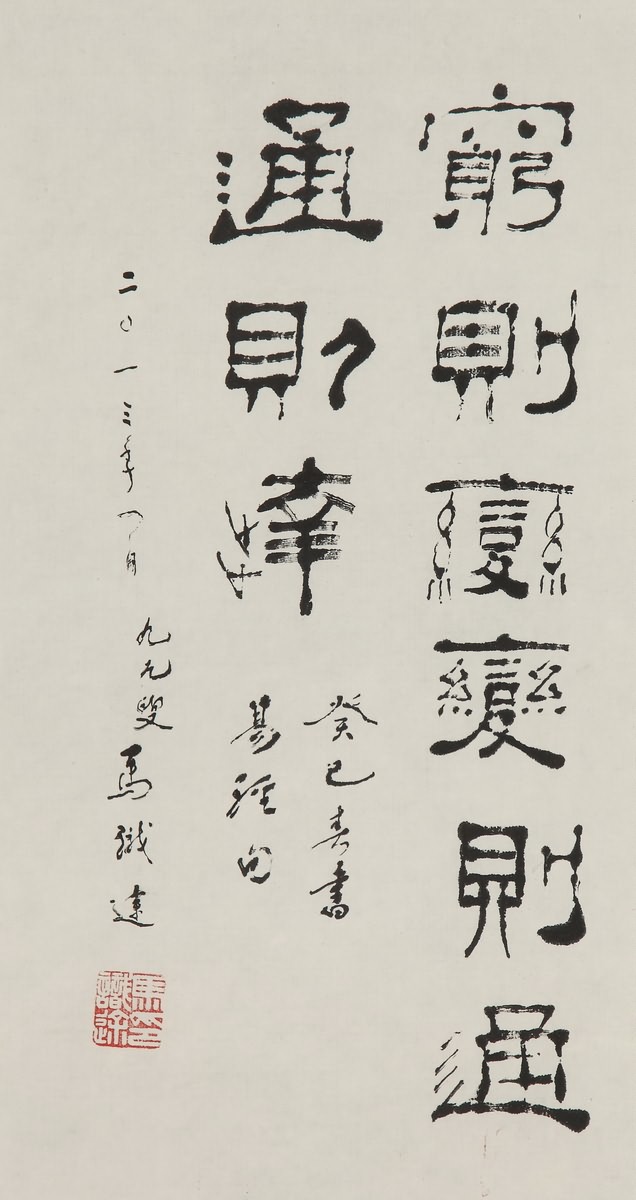 窮則變變則通
通則達
癸巳春書
易經句
二〇一三年四月九九叟馬識途
馬識途印